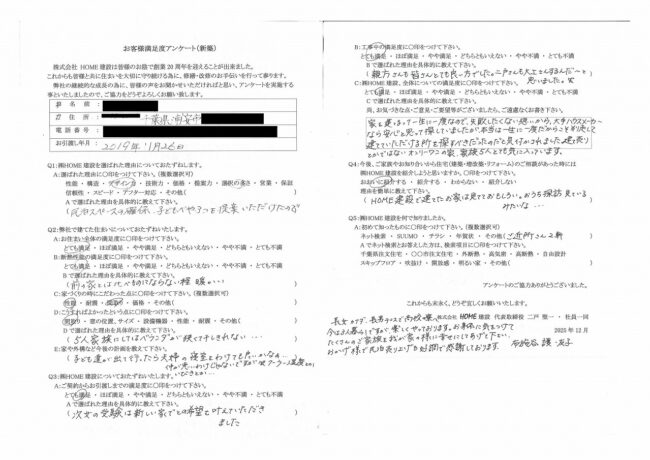 お客様満足度アンケート（新築）
株式会社 HOME建設は皆様のお陰で創業20周年を迎えることが出来ました。
これからも皆様と共に住まいを大切に守り続ける為に、修繕・改修のお手伝いを行って参ります。
弊社の継続的な成長の為に、皆様の声をお聞かせいただければと思い、アンケートを実施する
事といたしましたので、ご協力をどうぞよろしくお願い致します。
お 名 前：
ご 住 所： 千葉県浦安市
電 話 番 号：
お引渡し年月： 2019年 1月26日
Q1:㈱HOME建設を選ばれた理由についておたずねします。
A:選ばれた理由に〇印をつけて下さい。（複数選択可）
性能 ・ 構造 ・ デザイン力 ・ 技術力 ・ 価格 ・ 提案力 ・ 選択の楽さ ・ 営業 ・ 保証
信頼性 ・ スピード ・ アフター対応 ・ その他（ ）
Aで選ばれた理由を具体的に教えて下さい。
スペースの確保、子どもべや3つを提案いただけたので
Q2:弊社で建てた住まいについておたずねします。
A:お住まい全体の満足度に〇印をつけて下さい。
とても満足 ・ ほぼ満足 ・ やや満足 ・ どちらともいえない ・ やや不満 ・ とても不満
B:断熱性能の満足度に〇印をつけて下さい。
とても満足 ・ ほぼ満足 ・ やや満足 ・ どちらともいえない ・ やや不満 ・ とても不満
Bで選ばれた理由を具体的に教えて下さい。
（前の家とは比べものにならない程 暖かい!）
C:家づくりの時にこだわった点に〇印をつけて下さい。（複数選択可）
性能 ・ 耐震 ・ 間取り ・ 価格 ・ その他（ ）
D:こうすればよかったという点に〇印をつけて下さい。
間取り ・ 窓の位置、サイズ ・ 設備機器 ・ 性能 ・ 耐震 ・ その他（ ）
Dで選ばれた理由を具体的に教えて下さい。
（5人家族にしてはベランダが狭くて干しきれない…）
E:家や外構など今後の計画を教えて下さい。
（子ども達が出て行ったら夫婦の寝室をわけても良いかなぁ…
Q3:㈱HOME建設についておたずねいたします。
A:ご契約からお引渡しまでの満足度に〇印をつけて下さい。
とても満足 ・ ほぼ満足 ・ やや満足 ・ どちらともいえない ・ やや不満 ・ とても不満
Aで選ばれた理由を具体的に教えて下さい。
（次女の受験は新しい家でとの希望を叶えていただき
ました
B:工事中の満足度に〇印をつけて下さい。
とても満足 ・ ほぼ満足 ・ やや満足 ・ どちらともいえない ・ やや不満 ・ とても不満
Bで選ばれた理由を具体的に教えて下さい。
（親方さんも皆さんとても良い方でした。二戸さんも大工さするんだ〜と
思いました。笑
C:㈱HOME建設全体の満足度に〇印をつけて下さい。
とても満足 ・ ほぼ満足 ・ やや満足 ・ どちらともいえない ・ やや不満 ・ とても不満
尚、お気づきな点・ご意見・ご要望等がございましたら、ご遠慮なくお書き下さい。
家を建るって一生に一度なので、失敗したくない思いから、大手ハウスメーカー
なら安心と思って探していましたが、本当は一生に一度だからこそ
ていただける所を探すべきだったのだと気付かされました。建売り
とかではないオンリーワンの家、家族5人とても気に入っています。
Q4:今後、ご家族やお知り合いから住宅（建築・増改築・リフォーム）のご相談があった時には
㈱HOME建設を紹介しようと思いますか。〇印をつけて下さい。
おおいに紹介する ・ 紹介する ・ わからない ・ 紹介しない
理由を簡単に教えて下さい。
（HOME建設で建てたお家は見てておもしろい。おうち探訪見ている
みたいな…
Q5:㈱HOME建設を何で知りましたか。
A:初めて知ったものに〇印をつけて下さい。（複数選択可）
ネット検索 ・ SUUMO ・ チラシ ・ 年賀状 ・ その他（ご近所さん2軒）
Aでネット検索とお答えした方は、検索項目に〇印をつけて下さい。
千葉県注文住宅 ・ 〇〇市注文住宅 ・ 外断熱 ・ 高気密 ・ 高断熱 ・ 自由設計
スキップフロア ・ 吹抜け ・ 開放感 ・ 明るい家 ・ その他（ ）
アンケートのご協力ありがとうございました。
これからも末永く、どうぞ宜しくお願いいたします。
株式会社 HOME建設 代表取締役 二戸 聖一 ・ 社員一同
2025年12月
今は3人暮らしですが、楽しくやっております。お身体に気をつけて
たくさんのご家族を我が家の様に幸せにしてあげて下さい。